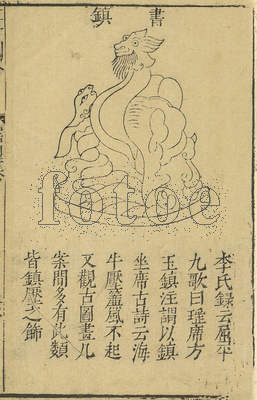 書鎮
李氏録云屈平
九歌曰瑤席方
玉鎮注謂以鎮
坐席古詩云海
牛壓簾風不起
又觀古圖畫几
案間多有此類
皆鎮壓之飾
fotoe